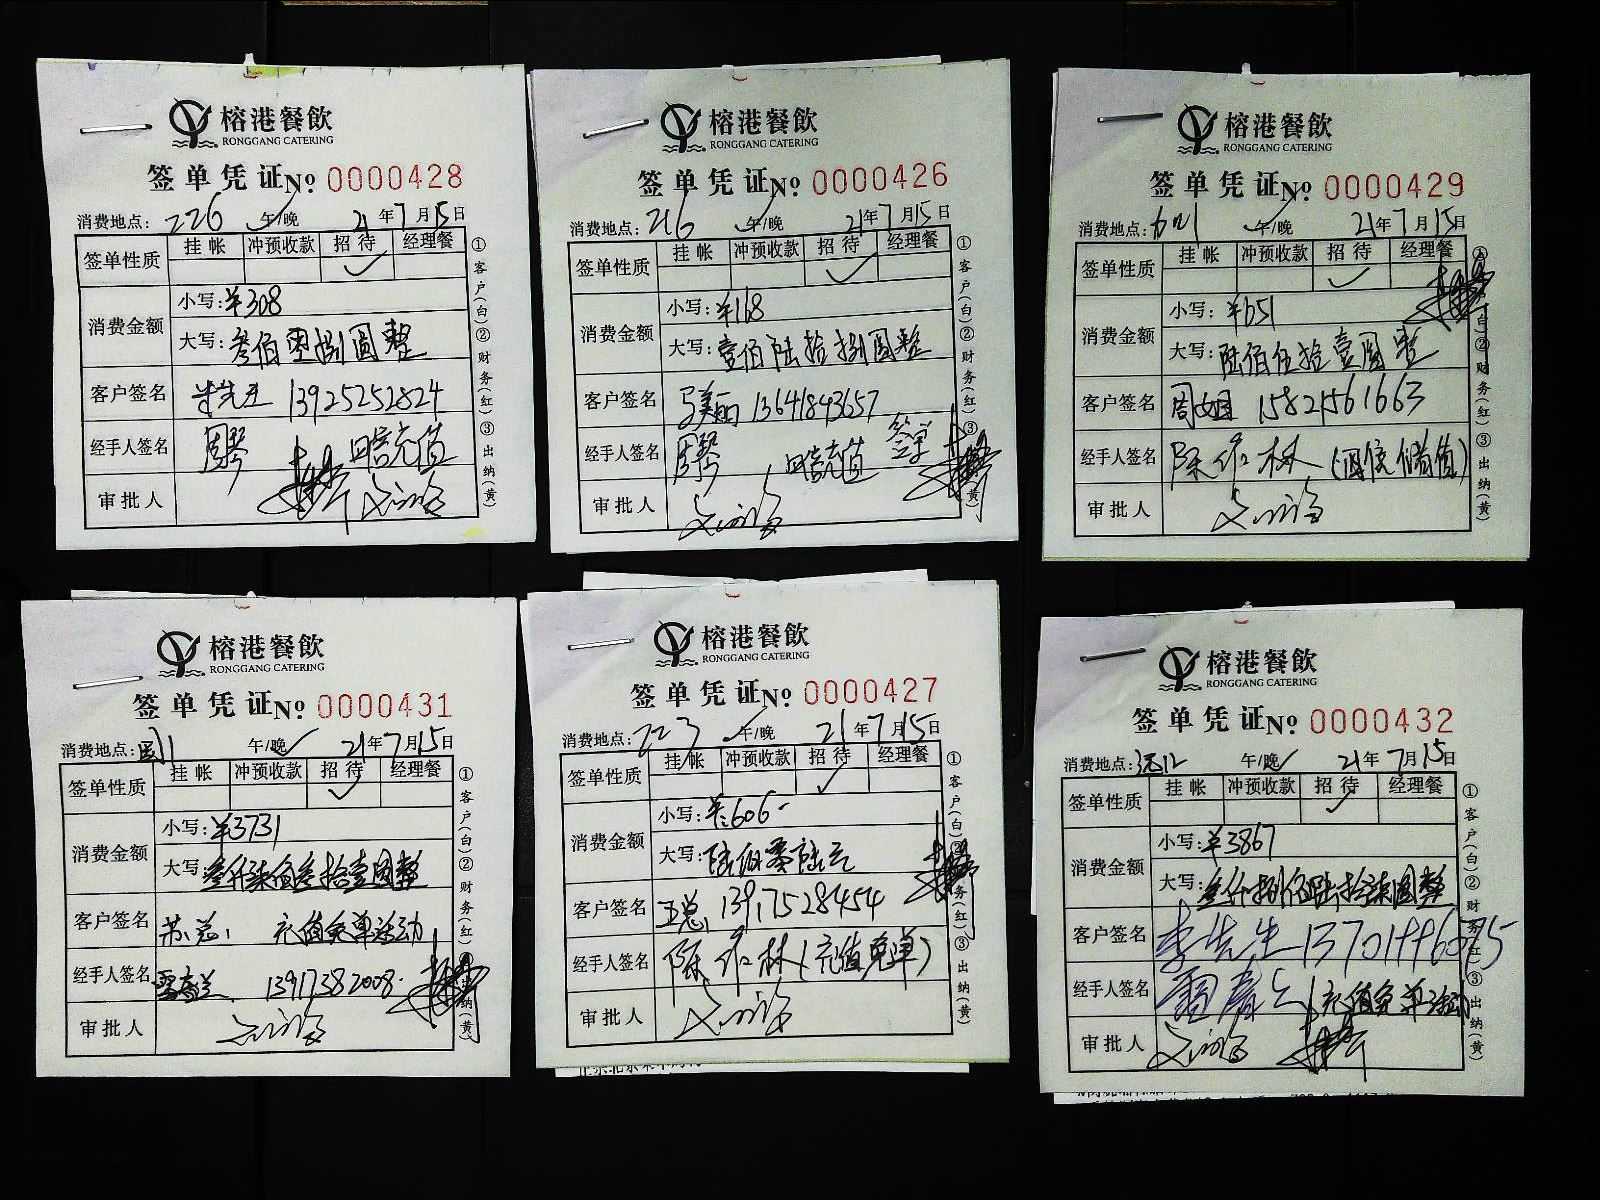 榕港餐飲
RONGGANG CATERING
签单凭证 No 0000428
消费地点: 226 午/晚 21年7月15日
签单性质 挂帐 冲预收款 招待 经理餐
✓
消费金额 小写: ¥308
大写: 叁佰零捌圆整
客户签名 13925252824
经手人签名 周琴 四倍充值
审批人
①客户(白)②财务(红)③出纳(黄)
榕港餐飲
RONGGANG CATERING
签单凭证 No 0000426
消费地点: 216 午/晚 21年7月15日
签单性质 挂帐 冲预收款 招待 经理餐
✓
消费金额 小写: ¥168
大写: 壹佰陆拾捌圆整
客户签名 马美丽 13641843657
经手人签名 周琴 四倍充值 签单
审批人
①客户(白)②财务(红)③出纳(黄)
榕港餐飲
RONGGANG CATERING
签单凭证 No 0000429
消费地点: 午/晚 21年7月15日
签单性质 挂帐 冲预收款 招待 经理餐
✓
消费金额 小写: ¥651
大写: 陆佰伍拾壹圆整
客户签名 周姐 15821561663
经手人签名 陈作林 (四倍储值)
审批人
①(白)②财务(红)③出纳(黄)
榕港餐飲
RONGGANG CATERING
签单凭证 No 0000431
消费地点: 午/晚 21年7月15日
签单性质 挂帐 冲预收款 招待 经理餐
✓
消费金额 小写: ¥3731
大写: 叁仟柒佰叁拾壹圆整
客户签名 苏总, 充值免单活动
经手人签名 13917382008.
审批人
①客户(白)②财务(红)出纳(黄)
榕港餐飲
RONGGANG CATERING
签单凭证 No 0000427
消费地点: 223 午/晚 21年7月15日
签单性质 挂帐 冲预收款 招待 经理餐
✓
消费金额 小写: ¥:606-
大写: 陆佰零陆元
客户签名 王总, 13917528454
经手人签名 陈作林 (充值免单)
审批人
①客户(白)务(红)③出纳(黄)
榕港餐飲
RONGGANG CATERING
签单凭证 No 0000432
消费地点: 午/晚 21年7月15日
签单性质 挂帐 冲预收款 招待 经理餐
✓
消费金额 小写: ¥3867
大写: 叁仟捌佰陆拾柒圆整
客户签名 李先生 13701996075
经手人签名 充值免单活动
审批人
①客户(白)②财务(红)③出纳(黄)